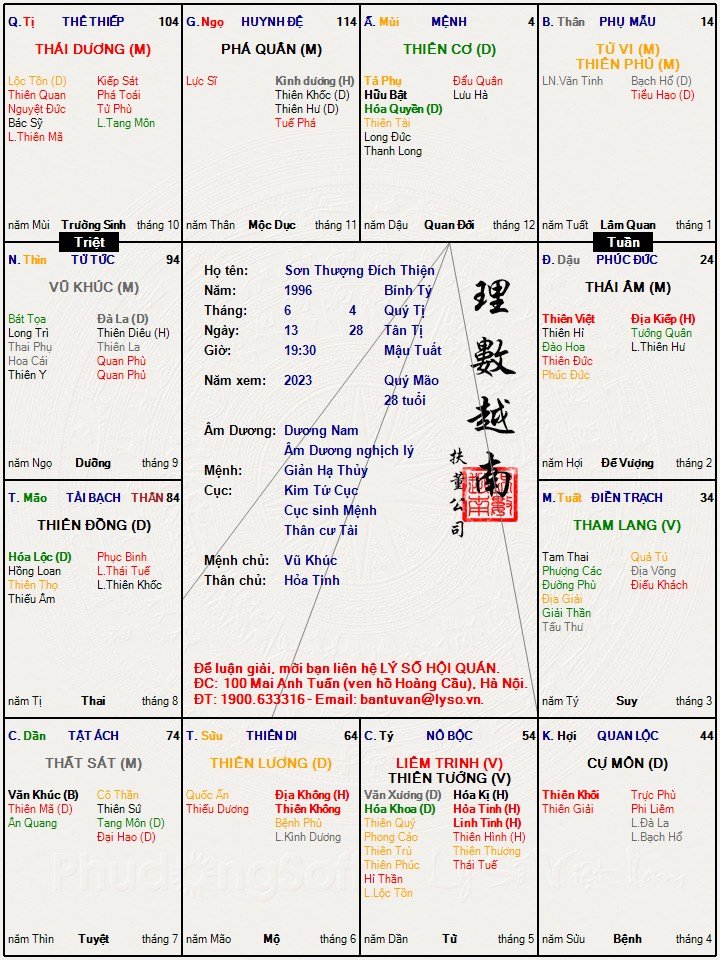 Q. Tị THÊ THIẾP 104
THÁI DƯƠNG (M)
Lộc Tồn (D) Kiếp Sát
Thiên Quan Phá Toái
Nguyệt Đức Tử Phù
Bác Sỹ L.Tang Môn
L.Thiên Mã
năm Mùi Trường Sinh tháng 10
G. Ngọ HUYNH ĐỆ 114
PHÁ QUÂN (M)
Lực Sĩ Kình dương (H)
Thiên Khốc (D)
Thiên Hư (D)
Tuế Phá
năm Thân Mộc Dục tháng 11
Ấ. Mùi MỆNH 4
THIÊN CƠ (D)
Tả Phụ Đẩu Quân
Hữu Bật Lưu Hà
Hóa Quyền (D)
Thiên Tài
Long Đức
Thanh Long
năm Dậu Quan Đới tháng 12
B. Thân PHỤ MẪU 14
TỬ VI (M)
THIÊN PHỦ (M)
LN.Văn Tinh Bạch Hổ (D)
Tiểu Hao (D)
năm Tuất Lâm Quan tháng 1
Triệt
Tuần
N. Thìn TỬ TỨC 94
VŨ KHÚC (M)
Bát Tọa Đà La (D)
Long Trì Thiên Diêu (H)
Thai Phụ Thiên La
Hoa Cái Quan Phù
Thiên Y Quan Phủ
năm Ngọ Dưỡng tháng 9
Họ tên: Sơn Thượng Đích Thiện
Năm: 1996 Bính Tý
Tháng: 6 4 Quý Tị
Ngày: 13 28 Tân Tị
Giờ: 19:30 Mậu Tuất
Năm xem: 2023 Quý Mão
28 tuổi
Âm Dương: Dương Nam
Âm Dương nghịch lý
Mệnh: Giản Hạ Thủy
Cục: Kim Tứ Cục
Cục sinh Mệnh
Thân cư Tài
Mệnh chủ: Vũ Khúc
Thân chủ: Hỏa Tinh
理數越南
扶董公司
Để luận giải, mời bạn liên hệ LÝ SỐ HỘI QUÁN.
ĐC: 100 Mai Anh Tuấn (ven hồ Hoàng Cầu), Hà Nội.
ĐT: 1900.633316 - Email: bantuvan@lyso.vn.
Đ. Dậu PHÚC ĐỨC 24
THÁI ÂM (M)
Thiên Việt Địa Kiếp (H)
Thiên Hỉ Tướng Quân
Đào Hoa L.Thiên Hư
Thiên Đức
Phúc Đức
năm Hợi Đế Vượng tháng 2
T. Mão TÀI BẠCH THÂN 84
THIÊN ĐỒNG (D)
Hóa Lộc (D) Phục Binh
Hồng Loan L.Thái Tuế
Thiên Thọ L.Thiên Khốc
Thiếu Âm
năm Tị Thai tháng 8
M. Tuất ĐIỀN TRẠCH 34
THAM LANG (V)
Tam Thai Quả Tú
Phượng Các Địa Võng
Đường Phù Điếu Khách
Địa Giải
Giải Thần
Tấu Thư
năm Tý Suy tháng 3
C. Dần TẬT ÁCH 74
THẤT SÁT (M)
Văn Khúc (B) Cô Thần
Thiên Mã (D) Thiên Sứ
Ân Quang Tang Môn (D)
Đại Hao (D)
năm Thìn Tuyệt tháng 7
T. Sửu THIÊN DI 64
THIÊN LƯƠNG (D)
Quốc Ấn Địa Không (H)
Thiếu Dương Thiên Không
Bệnh Phù
L.Kình Dương
năm Mão Mộ tháng 6
C. Tý NÔ BỘC 54
LIÊM TRINH (V)
THIÊN TƯỚNG (V)
Văn Xương (D) Hóa Kị (H)
Hóa Khoa (D) Hỏa Tinh (H)
Thiên Quý Linh Tinh (H)
Phong Cáo Thiên Hình (H)
Thiên Trù Thiên Thương
Thiên Phúc Thái Tuế
Hỉ Thần
L.Lộc Tồn
năm Dần Tử tháng 5
K. Hợi QUAN LỘC 44
CỰ MÔN (D)
Thiên Khôi Trực Phù
Thiên Giải Phi Liêm
L.Đà La
L.Bạch Hổ
năm Sửu Bệnh tháng 4